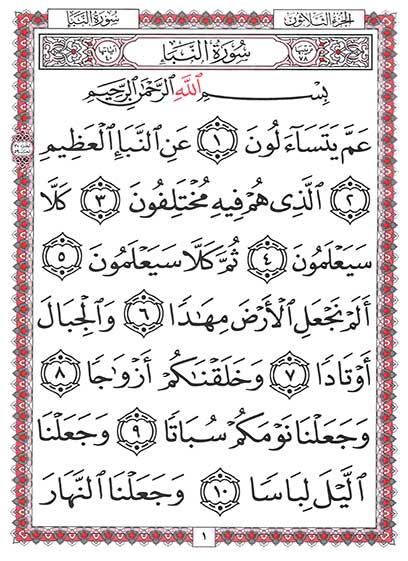 الجزء الثلاثون سورة النبأ
ترتيبها ٧٨ سورة النبإ آياتها ٤٠
بِسْمِ اللَّهِ الرَّحْمَٰنِ الرَّحِيمِ
عَمَّ يَتَسَآءَلُونَ ١ عَنِ ٱلنَّبَإِ ٱلْعَظِيمِ
٢ ٱلَّذِى هُمْ فِيهِ مُخْتَلِفُونَ ٣ كَلَّا
سَيَعْلَمُونَ ٤ ثُمَّ كَلَّا سَيَعْلَمُونَ ٥
أَلَمْ نَجْعَلِ ٱلْأَرْضَ مِهَٰدًا ٦ وَٱلْجِبَالَ
أَوْتَادًا ٧ وَخَلَقْنَٰكُمْ أَزْوَٰجًا ٨
وَجَعَلْنَا نَوْمَكُمْ سُبَاتًا ٩ وَجَعَلْنَا
ٱلَّيْلَ لِبَاسًا ١٠ وَجَعَلْنَا ٱلنَّهَارَ
١